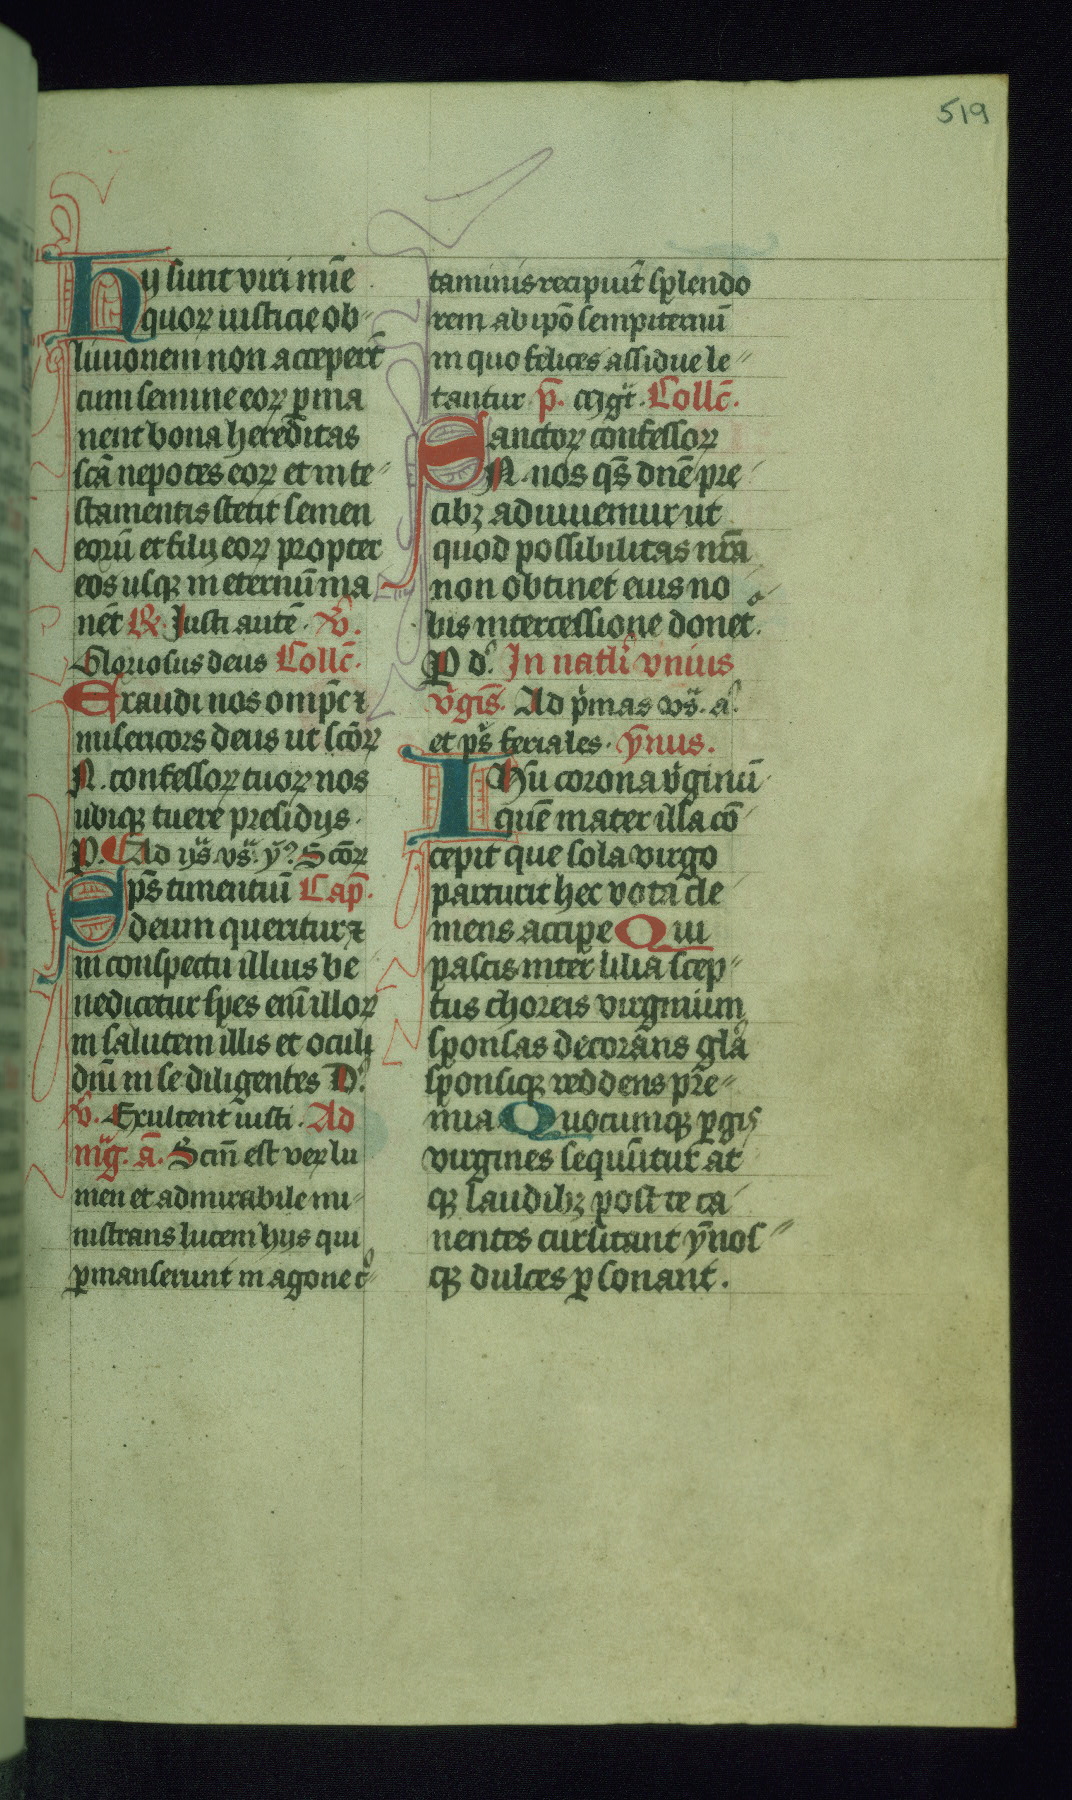 519
Hij sunt viri mīē
quoꝝ iusticie ob-
liuionem non accepert̄
cum semine eoꝝ ꝑma
nent bona hereditas
scā nepotes eoꝝ et in te-
stamentis stetit semen
eorū et filij eoꝝ propter
eos usqꝫ in eternū ma
nēt ℟. Iusti autē. ꝟ.
Gloriosus deus Collc̄.
Exaudi nos omp̄c ⁊
misericors deus ut scōꝝ
N. confessoꝝ tuoꝝ nos
ubiqꝫ tuere presidijs.
P. Ad ijs̄ vs̄. y̓. Scōꝝ
Sp̄s timentiū Cap̄.
deum queritur ⁊
in conspectu illius be
nedicetur spes enī illoꝝ
in salutem illis et oculi
dn̄i in se diligentes D.
ꝟ. Exultent iusti. Ad
mg̅. a̅. Scīn̄ est veꝝ lu
men et admirabile mi-
nistrans lucem hijs qui
ꝑmanserunt in agone c̓-
taminis recipiūt splendo
rem ab ip̄o sempiternū
in quo felices assidue le-
tantur p̄. mg̅t. Collc̄.
Sanctoꝝ confessoꝝ
N. nos qs̄ dn̄e pre-
cibꝫ adiuuemur ut
quod possibilitas nr̄a
non obtinet eius no
bis intercessione donet.
P d̓. In natłi vnius
v̓gīs. Ad p̓mas vs̄. a̓.
et ps̄ feriales. ȳnus.
Ihū corona v̓ginū
quē mater illa cō-
cepit que sola virgo
parturit hec vota cle-
mens accipe Qui
pascis inter lilia sep-
tus choreis virginum
sponsas decorans gl̄a
sponsiqꝫ reddens pre-
mia Quocumqꝫ ꝑgis
virgines sequūtur at
qꝫ laudibꝫ post te ca-
nentes cursitant ȳnos-
qꝫ dulces ꝑsonant.